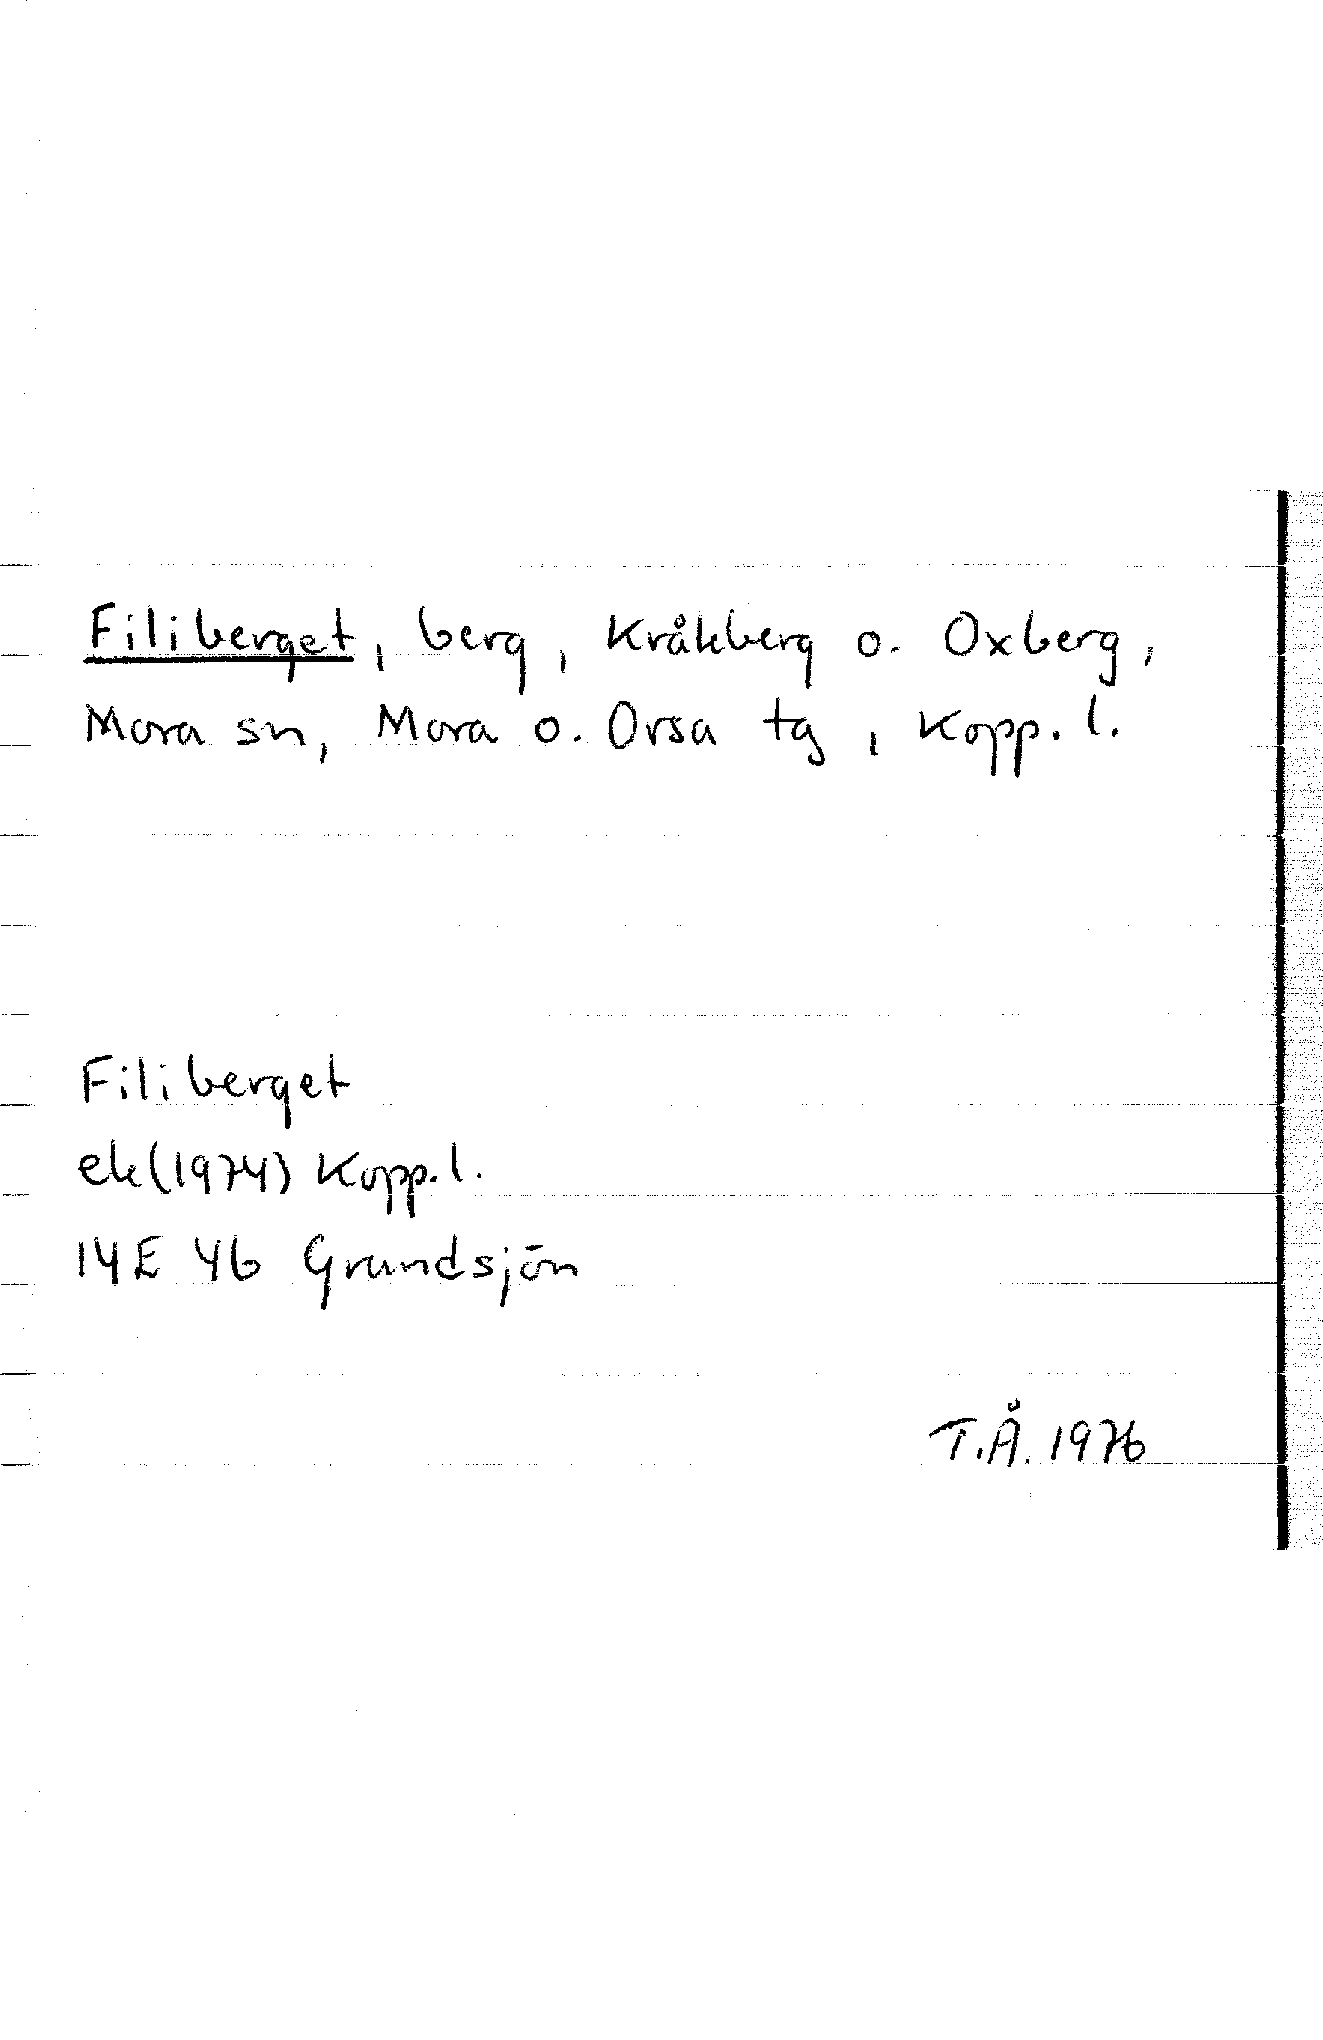 Filiberget, berg, Kråkberg o. Oxberg,
Mora sn, Mora o. Orsa tg, Kopp. l.
Filiberget
ek(1974) Kopp.l.
14E 4b Grundsjön
T.Å. 1976